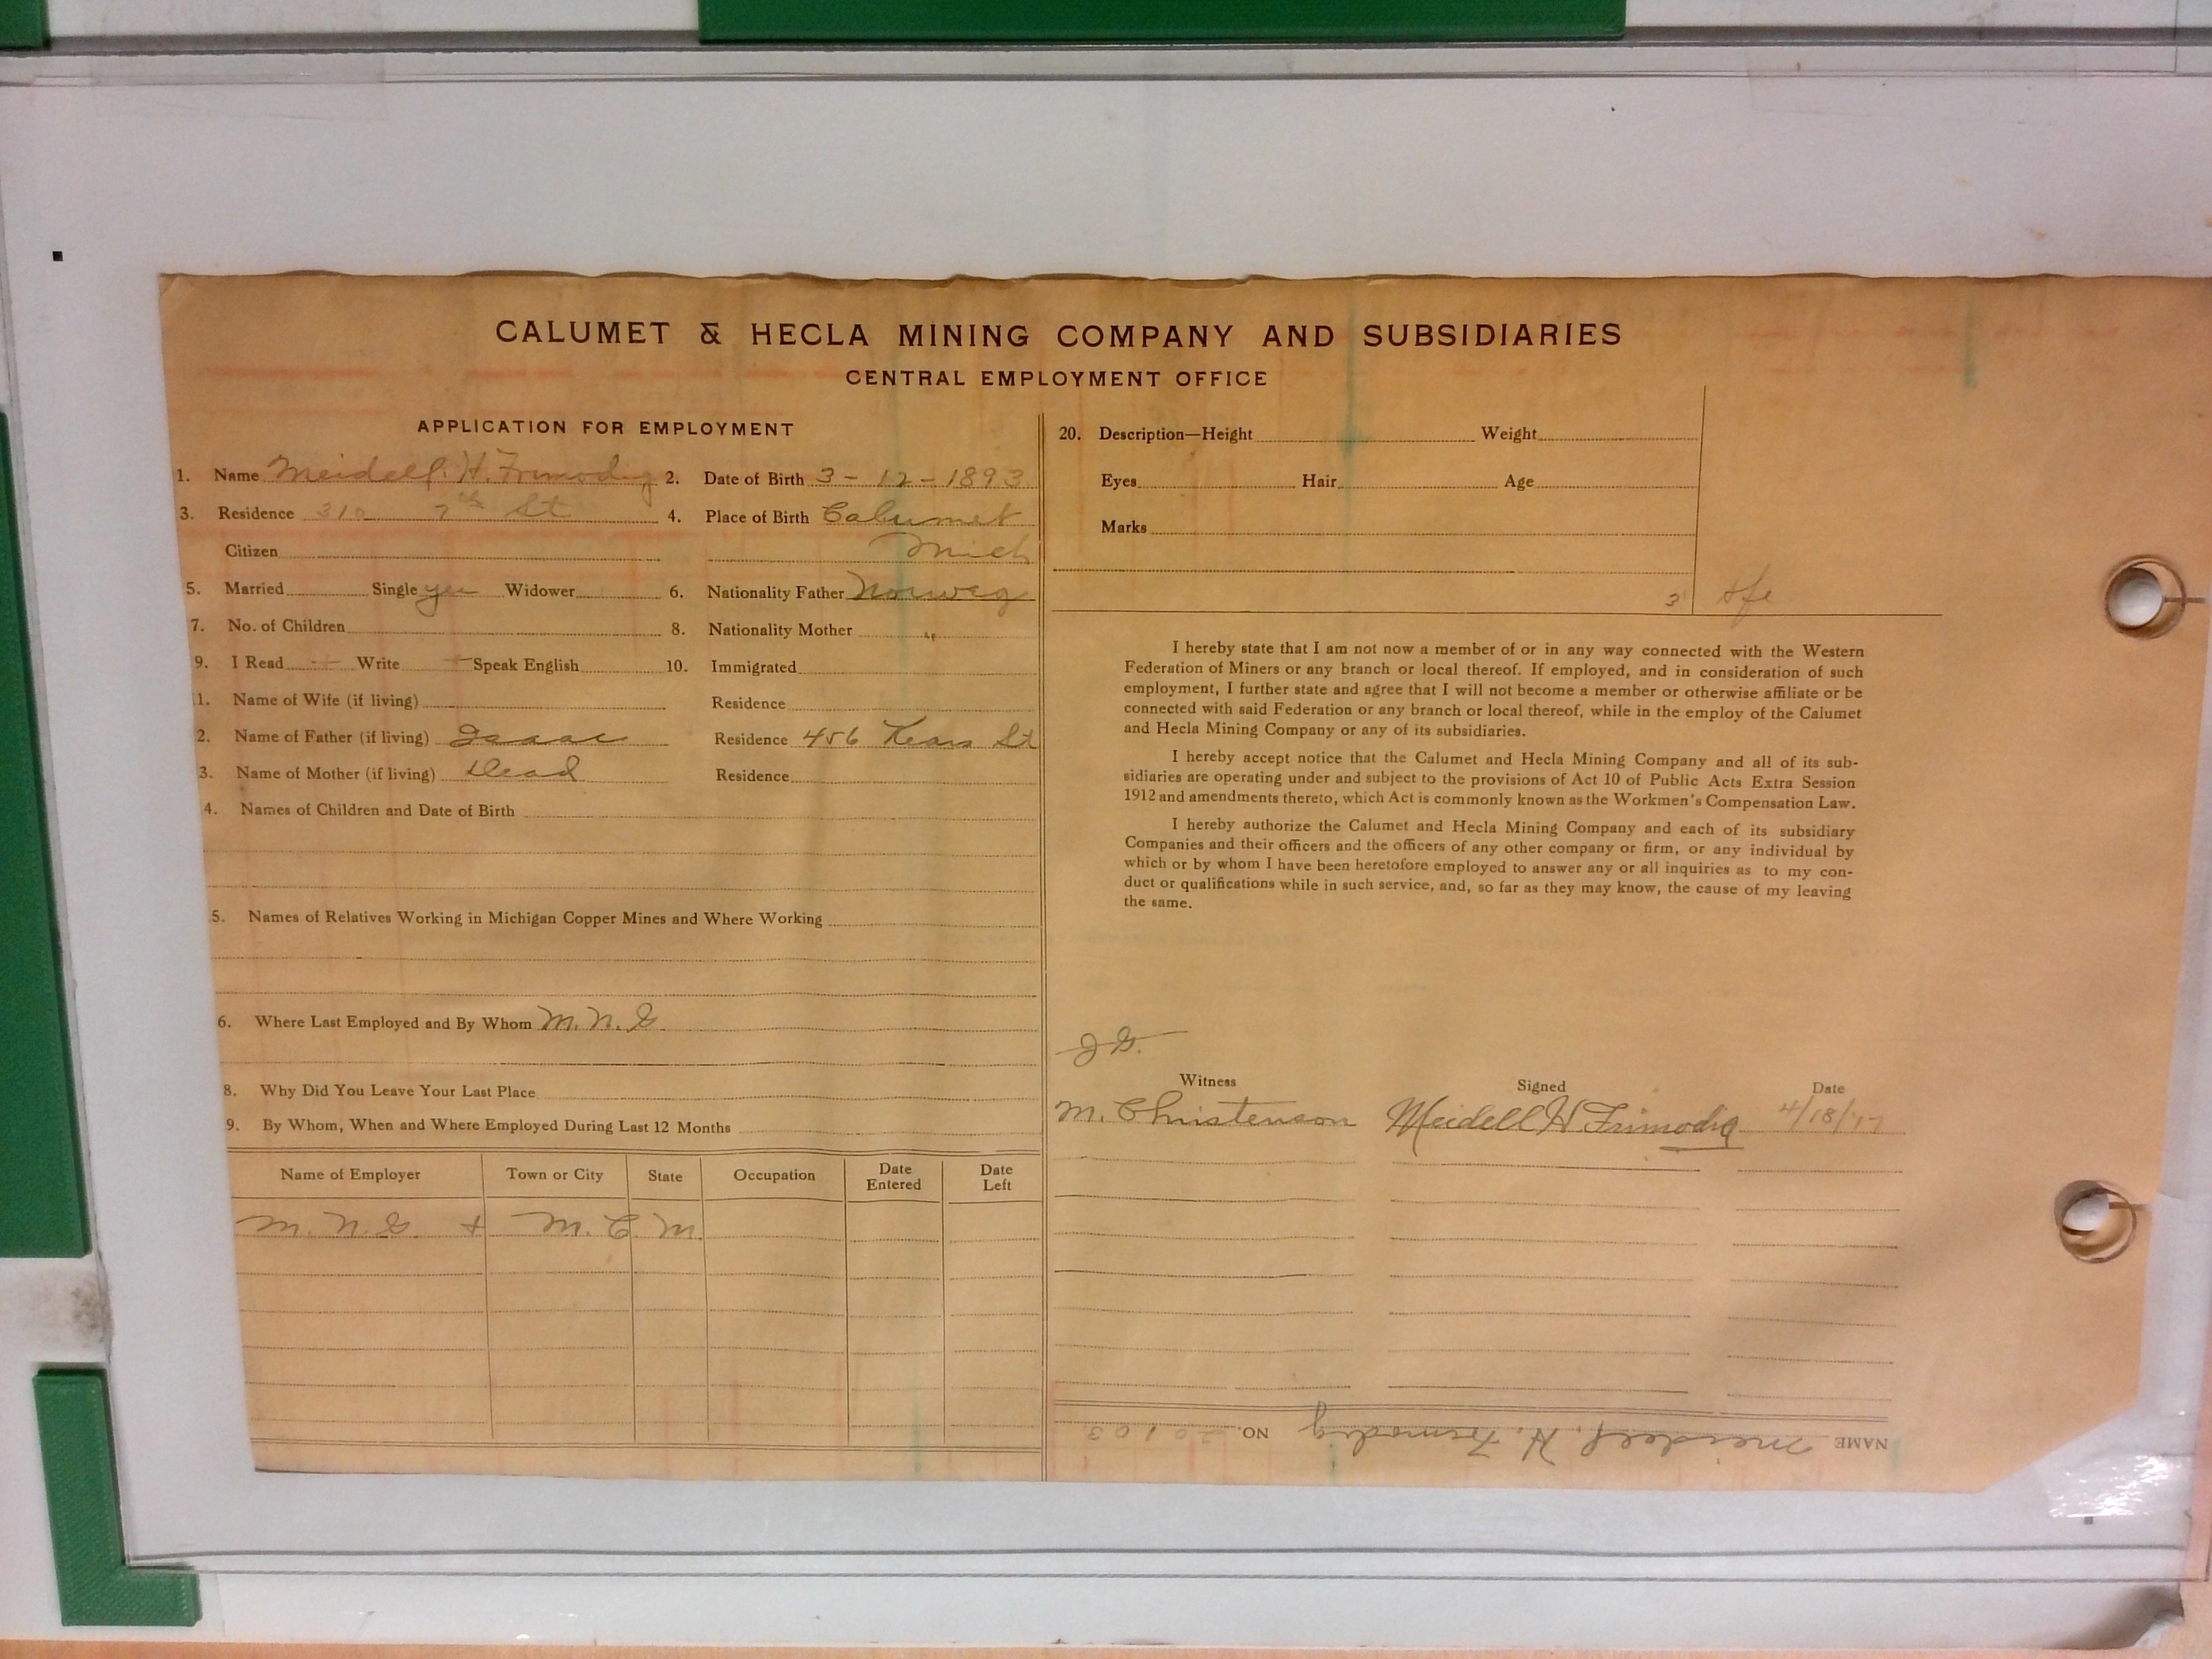 CALUMET & HECLA MINING COMPANY AND SUBSIDIARIES
CENTRAL EMPLOYMENT OFFICE
APPLICATION FOR EMPLOYMENT
1. Name Meidell. H. Frimodig
2. Date of Birth 3 - 12 - 1893
3. Residence 310 7th St
4. Place of Birth Calumet
Citizen
Mich
5. Married Single yes Widower
6. Nationality Father Norweg
7. No. of Children
8. Nationality Mother "
9. I Read + Write + Speak English
10. Immigrated
1. Name of Wife (if living) Residence
2. Name of Father (if living) Isaac Residence 456 Kears St
3. Name of Mother (if living) Dead Residence
4. Names of Children and Date of Birth
5. Names of Relatives Working in Michigan Copper Mines and Where Working
6. Where Last Employed and By Whom M. N. G.
8. Why Did You Leave Your Last Place
9. By Whom, When and Where Employed During Last 12 Months
Name of Employer Town or City State Occupation Date Entered Date Left
M. N. G. + M. C. M.
20. Description—Height Weight
Eyes Hair Age
Marks
3
I hereby state that I am not now a member of or in any way connected with the Western
Federation of Miners or any branch or local thereof. If employed, and in consideration of such
employment, I further state and agree that I will not become a member or otherwise affiliate or be
connected with said Federation or any branch or local thereof, while in the employ of the Calumet
and Hecla Mining Company or any of its subsidiaries.
I hereby accept notice that the Calumet and Hecla Mining Company and all of its sub-
sidiaries are operating under and subject to the provisions of Act 10 of Public Acts Extra Session
1912 and amendments thereto, which Act is commonly known as the Workmen's Compensation Law.
I hereby authorize the Calumet and Hecla Mining Company and each of its subsidiary
Companies and their officers and the officers of any other company or firm, or any individual by
which or by whom I have been heretofore employed to answer any or all inquiries as to my con-
duct or qualifications while in such service, and, so far as they may know, the cause of my leaving
the same.
J G.
Witness Signed Date
M. Christenson Meidell H Frimodig 4/18/17
NAME Meidell. H. Frimodig NO. 20103